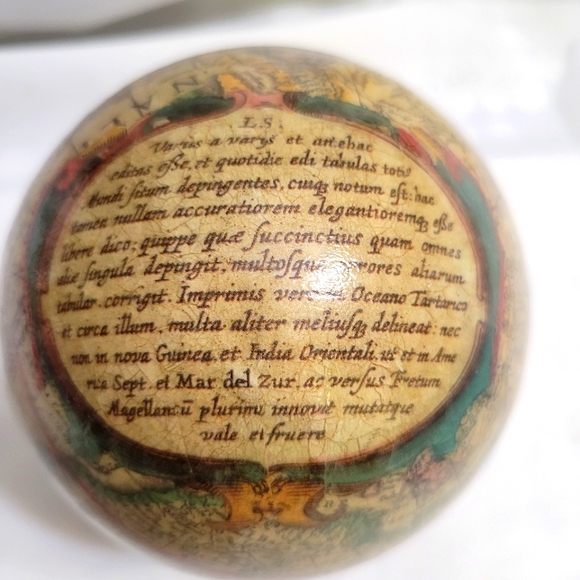 L.S.
Variis a varijs et antehac
editas esse, et quotidie edi tabulas totiꝰ
Mundi situm depingentes, cuiqꝫ notum est: hac
tamen nullam accuratiorem elegantioremqꝫ esse
libere dico; quippe quæ succinctius quam omnes
aliæ singula depingit, multosque errores aliarum
tabular. corrigit. Imprimis vero in Oceano Tartarico
et circa illum, multa aliter meliusqꝫ delineat. nec
non in nova Guinea, et India Orientali, ut et in Ame
rica Sept. et Mar del Zur, ac versus Fretum
Magellanicū plurima innovat mutatque
vale et fruere